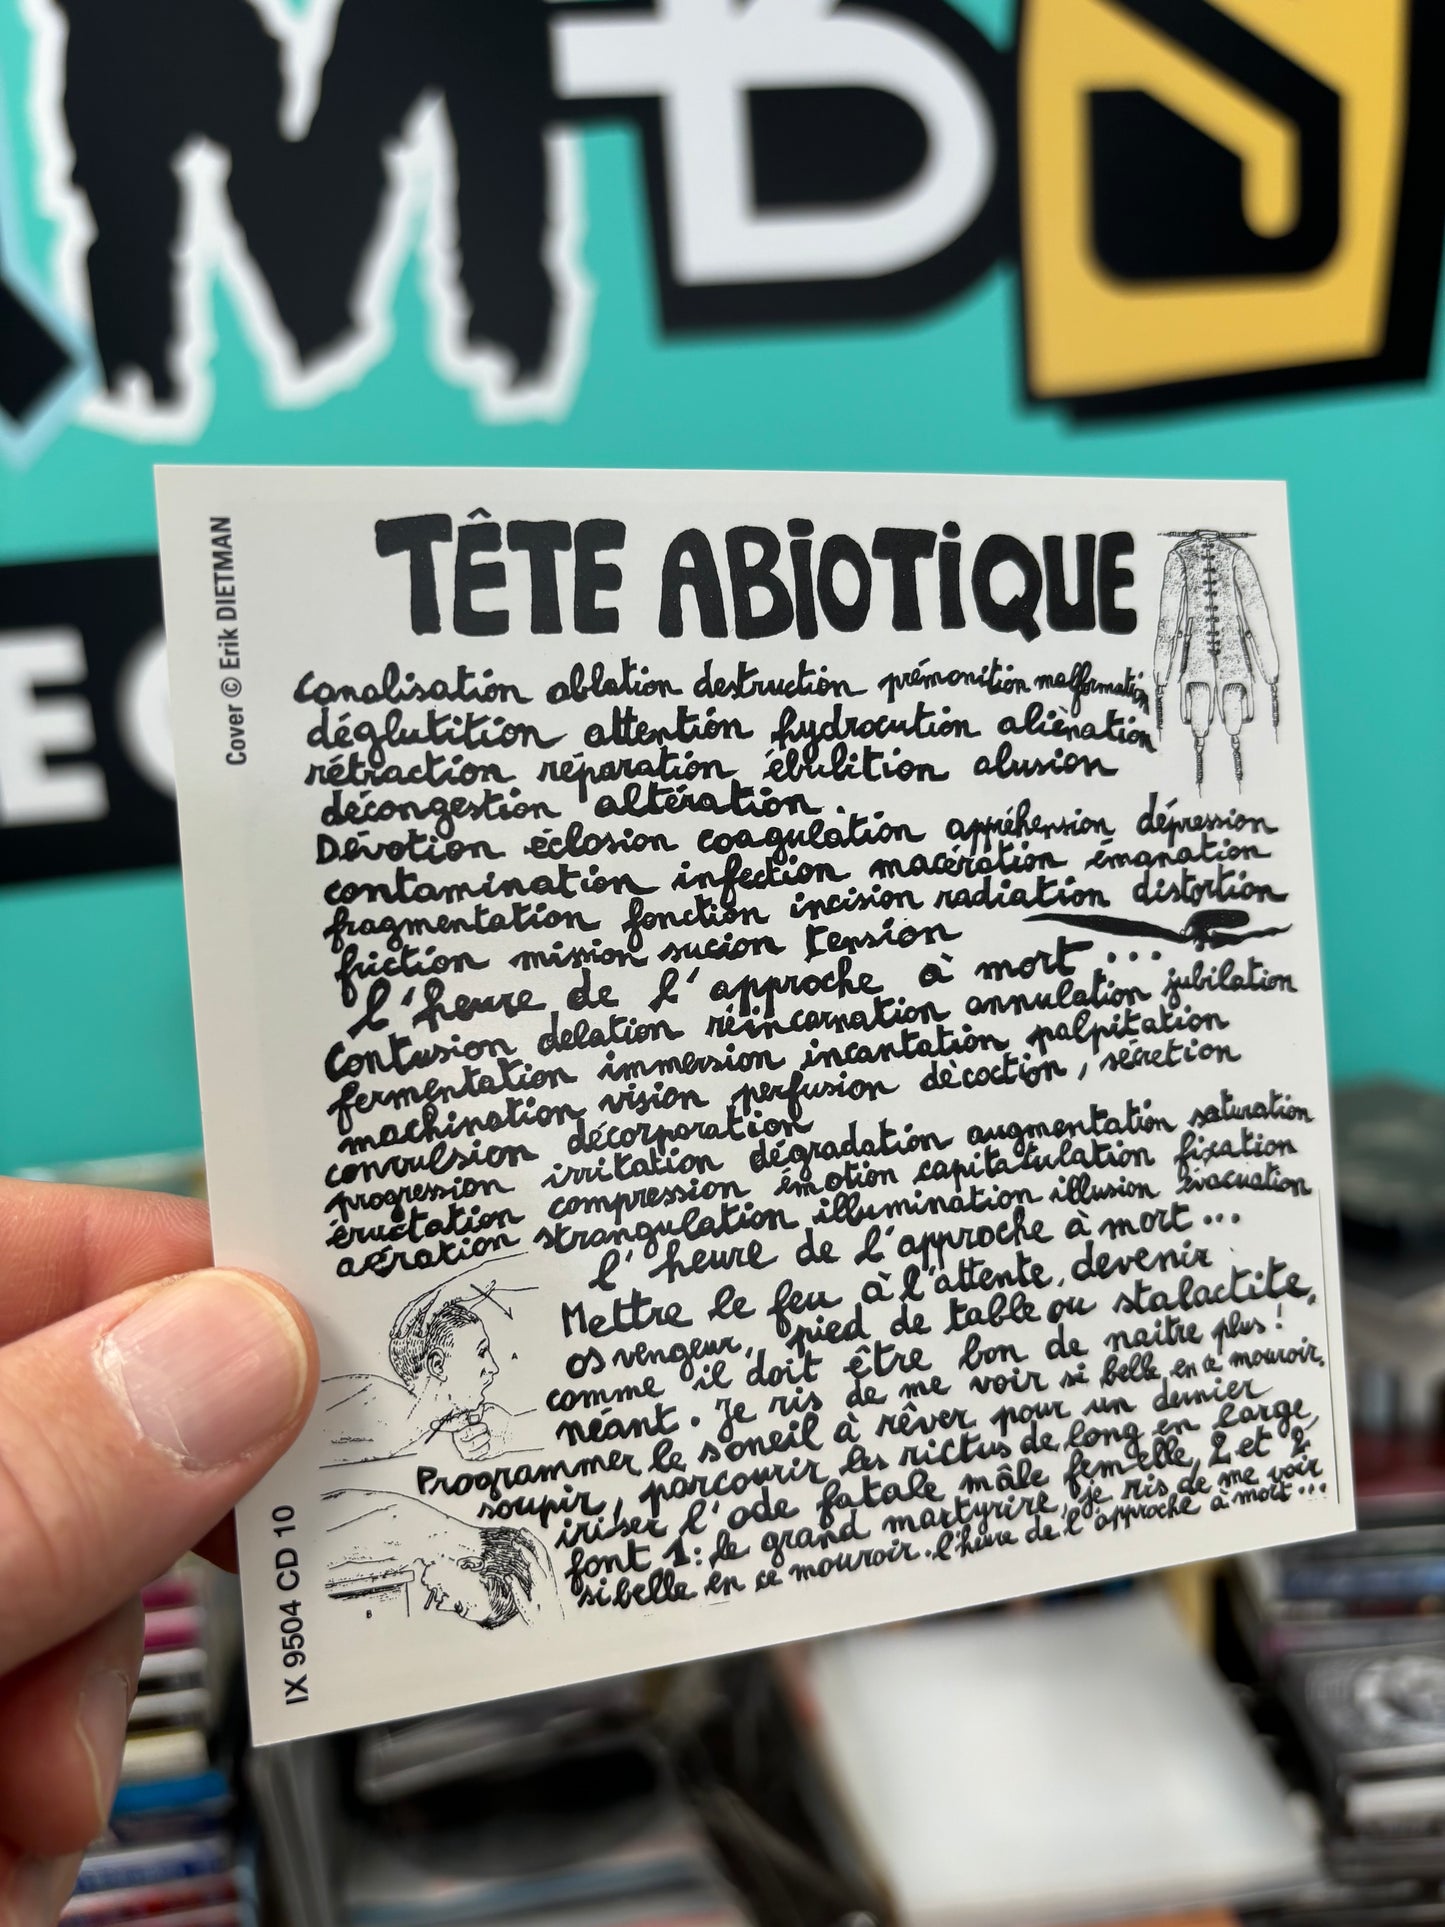 Cover © Erik DIETMAN
IX 9504 CD 10
TÊTE ABIOTIQUE
Canalisation ablation destruction prémonition malformation
déglutition attention hydrocution aliènation
rétraction réparation ébulition alusion
décongestion altération.
Dévotion éclosion coagulation appréhension dépression
contamination infection macération émanation
fragmentation fonction incision radiation distortion
friction mission sucion tension
l'heure de l'approche à mort...
Contusion delation réincarnation annulation jubilation
fermentation immersion incantation palpitation
machination vision perfusion dècoction, sécretion
convulsion décorporation
progression irritation dégradation augmentation saturation
éructation compression émotion capitatulation fixation
aération strangulation illumination illusion évacuation
l'heure de l'approche à mort...
Mettre le feu à l'attente, devenir
os vengeur, pied de table ou stalactite,
comme il doit être bon de naitre plus!
néant. Je ris de me voir si belle en ce mouroir.
Programmer le someil à rêver pour un dernier
soupir, parcourir les rictus de long en large,
iriser l'ode fatale mâle femelle, 2 et 2
font 1: le grand martyrire, je ris de me voir
si belle en ce mouroir. l'heure de l'approche à mort...
A
B